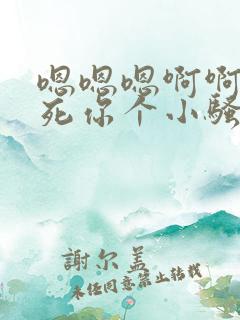 嗯嗯嗯啊啊
死你个小骚
謝尔盖
未经同意禁止转载